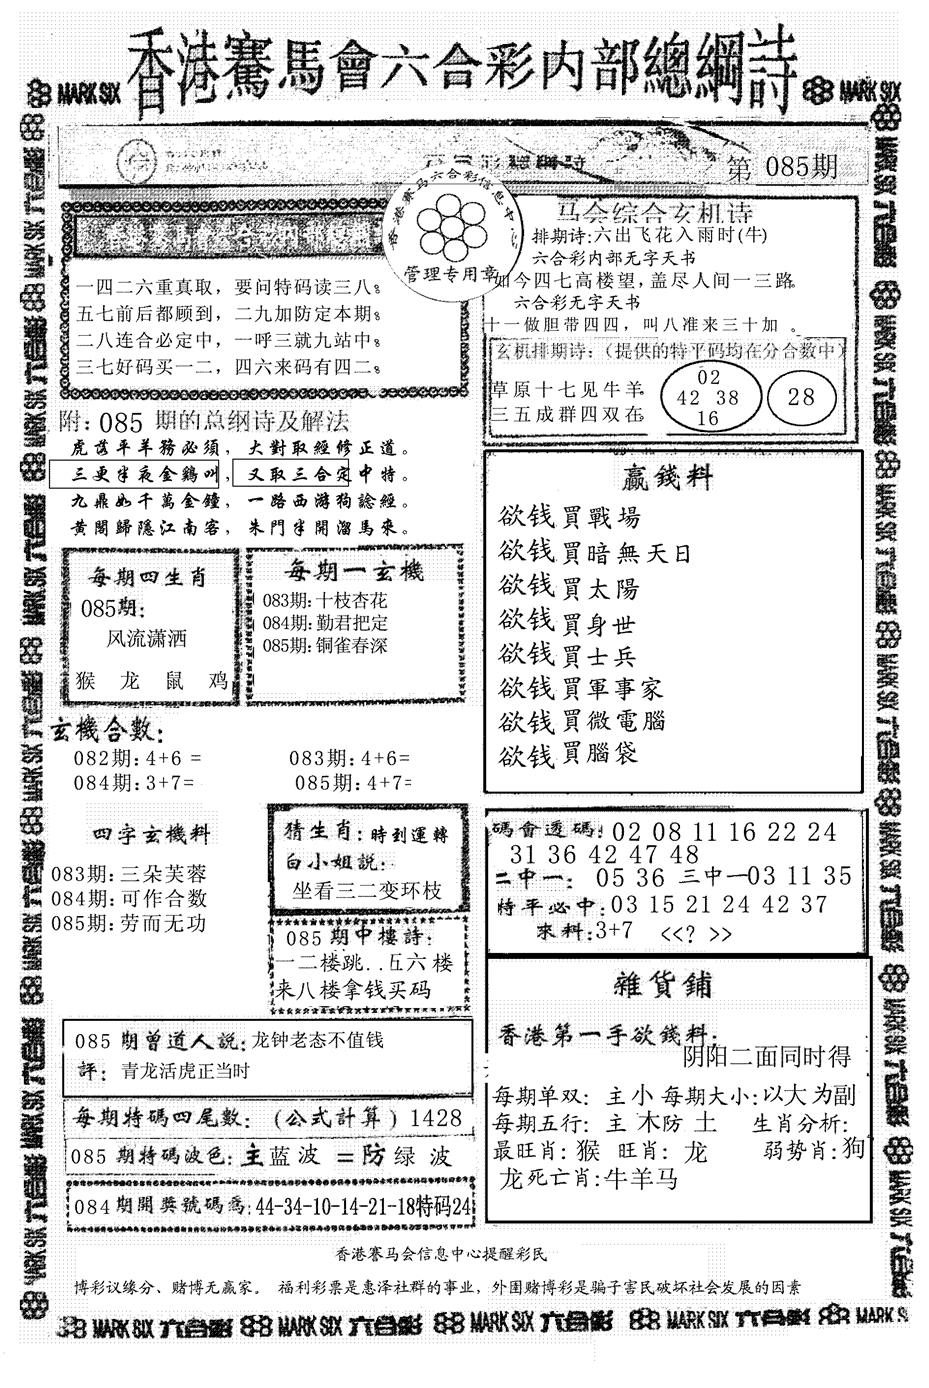 香港賽馬會六合彩内部總綱詩
第 085期
香港赛马六合彩信息中
管理专用章
一四二六重真取，要问特码读三八。
五七前后都顾到，二九加防定本期。
二八连合必定中，一呼三就九站中。
三七好码买一二，四六来码有四二。
马会综合玄机诗
排期诗:六出飞花入雨时(牛)
六合彩内部无字天书
如今四七高楼望,盖尽人间一三路
六合彩无字天书
十一做胆带四四，叫八准来三十加 。
玄机排期诗:（提供的特平码均在分合数中）
草原十七见牛羊
三五成群四双在
02
42 38
16
28
附: 085 期的总纲诗及解法
虎落平羊務必須，大對取經修正道。
三更半夜金鷄叫，又取三合定中特。
九鼎如千萬金鐘，一路西游狗諗經。
黄閣歸隱江南客，朱門半開溜馬來。
每期四生肖
085期:
风流潇洒
猴 龙 鼠 鸡
每期一玄機
083期:十枝杏花
084期:勤君把定
085期:铜雀春深
赢錢料
欲钱買戰場
欲钱買暗無天日
欲钱買太陽
欲钱買身世
欲钱買士兵
欲钱買軍事家
欲钱買微電腦
欲钱買腦袋
玄機合數:
082期: 4+6 =
083期: 4+6=
084期: 3+7=
085期: 4+7=
四字玄機料
083期: 三朵芙蓉
084期: 可作合数
085期: 劳而无功
猜生肖: 時到運轉
白小姐説:
坐看三二变环枝
085 期中樓詩:
一二楼跳..五六楼
来八楼拿钱买码
碼會透碼: 02 08 11 16 22 24
31 36 42 47 48
二中一: 05 36 三中一03 11 35
特平必中:03 15 21 24 42 37
來料:3+7 <<? >>
雜貨鋪
香港第一手欲錢料:
阴阳二面同时得
每期单双: 主小 每期大小:以大为副
每期五行: 主 木防 土 生肖分析:
最旺肖: 猴 旺肖: 龙 弱势肖:狗
龙死亡肖:牛羊马
085 期曾道人説:龙钟老态不值钱
評: 青龙活虎正当时
每期特碼四尾數: (公式計算) 1428
085 期特碼波色: 主蓝波 =防 绿 波
084期開獎號碼爲:44-34-10-14-21-18特码24
香港赛马会信息中心提醒彩民
博彩议缘分、赌博无赢家。 福利彩票是惠泽社群的事业，外围赌博彩是骗子害民破坏社会发展的因素
MARK SIX 六合彩 MARK SIX 六合彩 MARK SIX 六合彩 MARK SIX 六合彩 MARK SIX